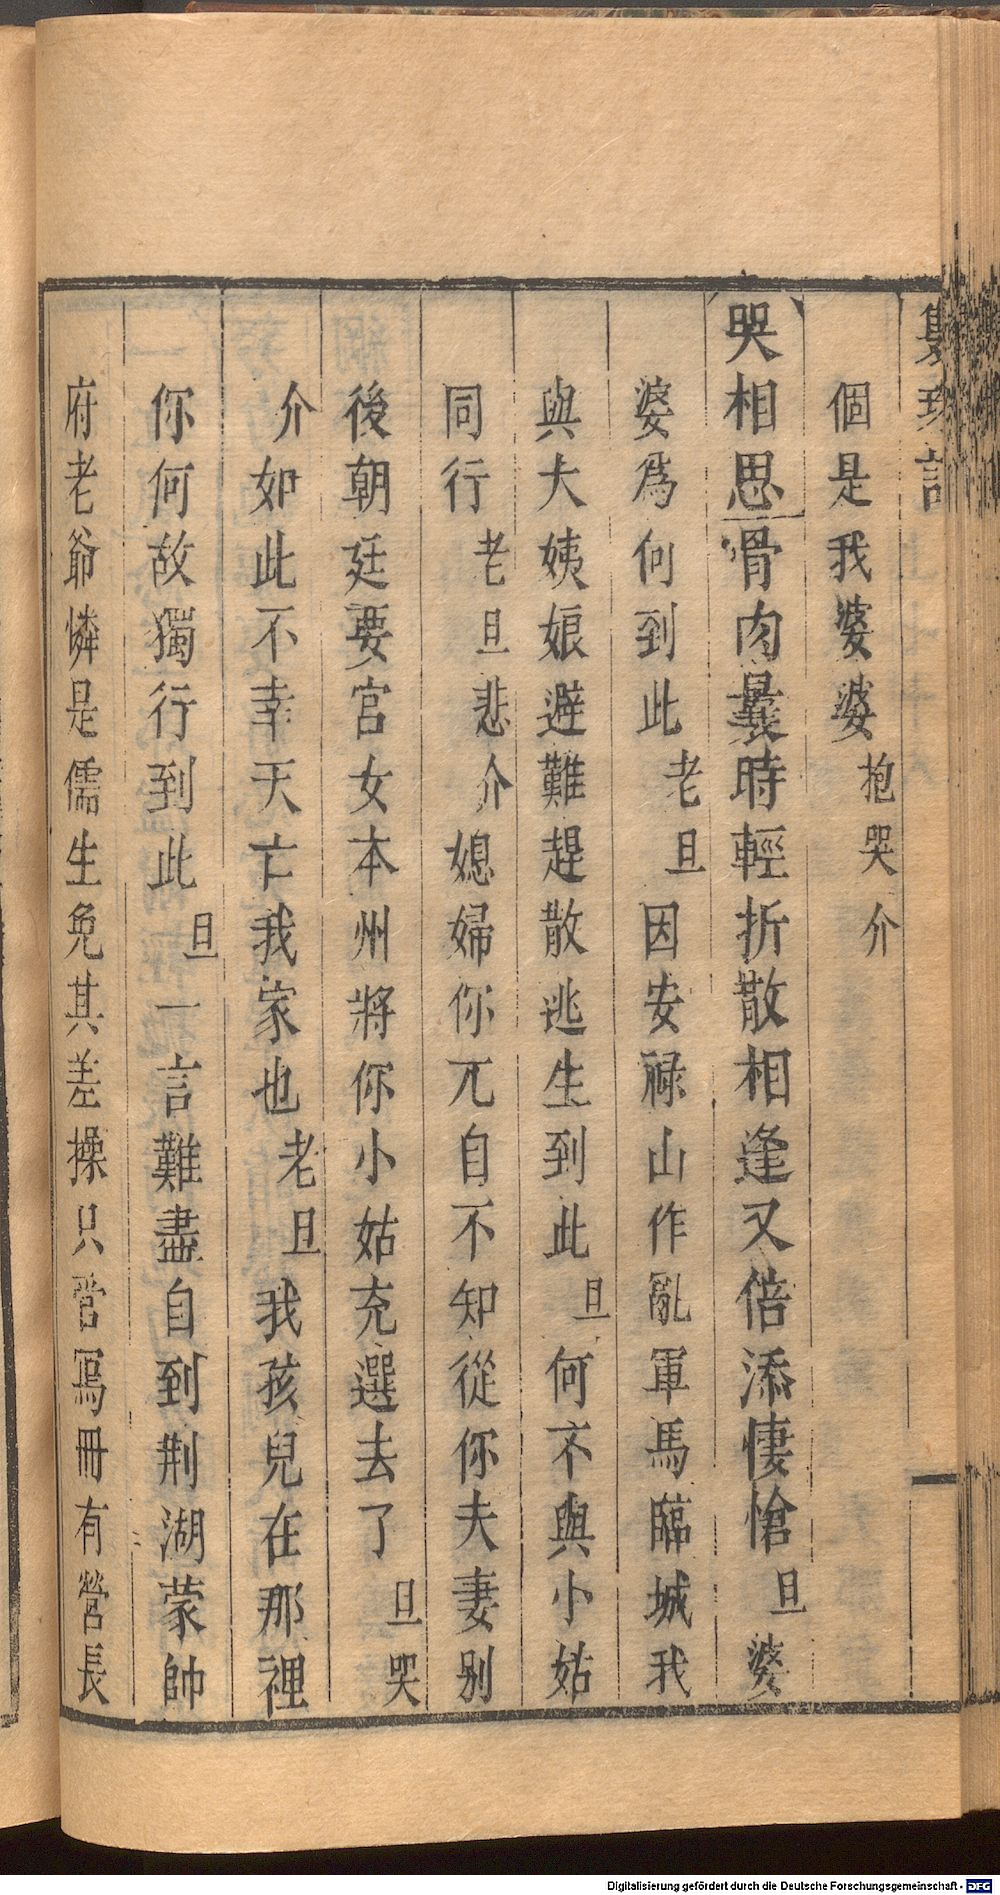 個是我婆婆抱哭介
哭相思骨肉曩時輕折散相逢又倍添悽愴旦婆
婆爲何到此老旦因安祿山作亂軍馬臨城我
與大姨娘避難趕散逃生到此旦何不與小姑
同行老旦悲介媳婦你兀自不知從你夫妻別
後朝廷要宮女本州將你小姑充選去了旦哭
介如此不幸天亡我家也老旦我孩兒在那裡
你何故獨行到此旦一言難盡自到荆湖蒙帥
府老爺憐是儒生免其差操只管寫冊有營長
Digitalisierung gefördert durch die Deutsche Forschungsgemeinschaft - DFG